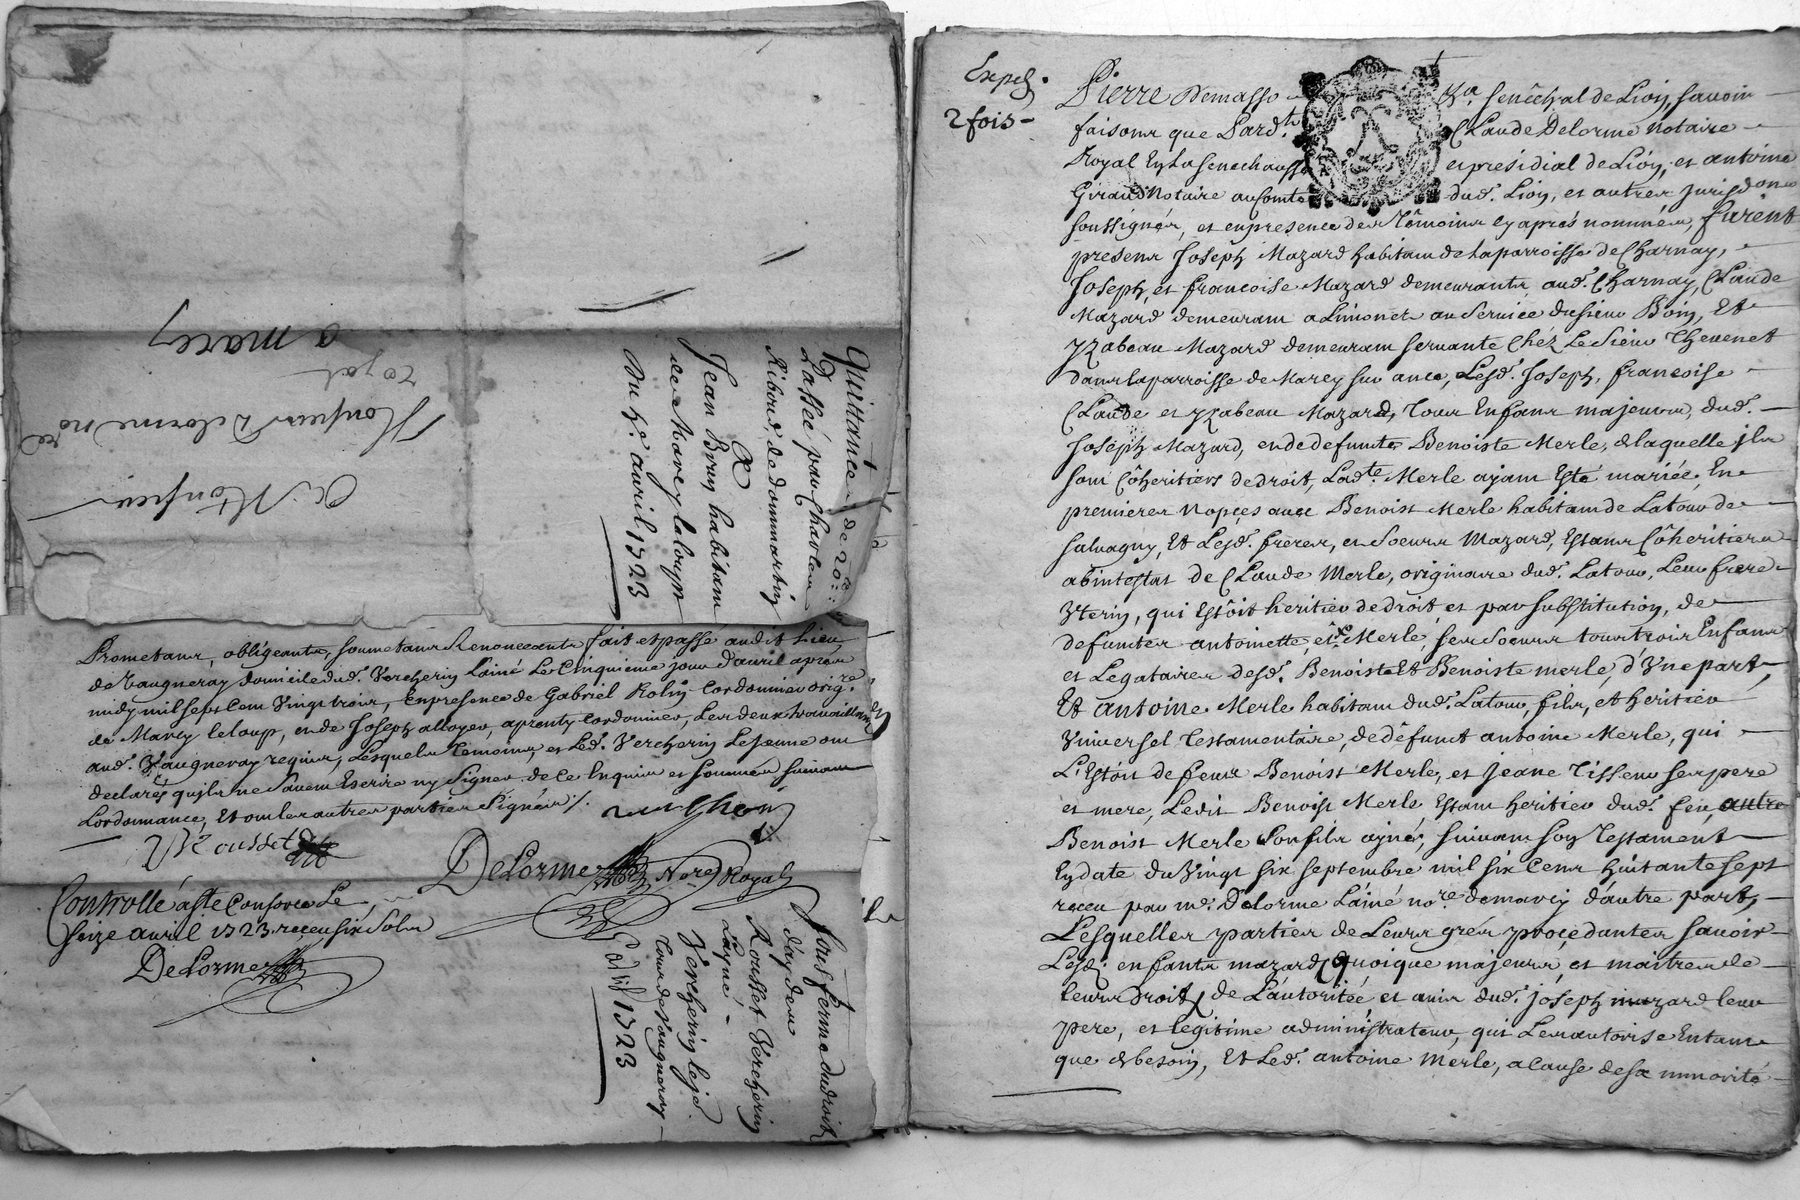 a marcy
royal
Monsieur Delorme no.re
A Monsieur
Quittance de 20.
Passé par Charles
Ribou, de dommartin
A
Jean Brun habitant
de Marcy leloup
Du 4.e auril 1723
Prometans, obligeants, soumetans Renonceants fait et passé audit Lieu
de Vaugneray domicile dud. Vercherin Lainé Le Cinquieme jour d'auril apres
midy mil sept cent vingt trois, En presence de Gabriel Rolin Cordonnier orig.re
de Marcy leloup, en de Joseph alloyer, aprenty Cordonnier, Les deux travaillans
aud. Vaugneray requis, Lesquels Temoins, et Led. Vercherin Lejeune ont
declarés quils ne Sauent Escrire ny Signer de ce Enquis et sommés suiuant
Lordonnance, Et ont les autres parties Signés /.
Rousset
DeLorme No.re Royal
Controllé a Ste Consorce Le
seize auril 1723. receu six Sols
DeLorme
sousferme du droit
d'aydes
Rousset Vercherin
Layné
Vercherin lejd.
Tour de Vaugneray
5 auril 1723
Exped.
2 fois
Pierre Demasso S.r Senêchal de Lion, sauoir
faisons que Pard.t Claude Delorme notaire
Royal En La Senechaussé et presidial de Lion, et antoine
Giraud Notaire au Comté dud. Lion, et autres jurisdons
soussignés, et en presence des Têmoins cy aprés nommés, furent
presens Joseph Mazard habitant de la parroisse de Charnay,
Joseph, et francoise Mazard demeurants aud. Charnay, Claude
Mazard demeurant a Limonet au Seruice du sieur Boin, Et
yzabeau Mazard demeurant seruante Chéz Le Sieur Theuenet
dans la parroisse de Marcy sur ance, Lesd. Joseph, francoise
Claude et yzabeau Mazard, Tous Enfans majeurs, dud.
Joseph Mazard, en de defunte Benoiste Merle, de laquelle jls
sont Côheritiers de droit, Lad.te Merle ajant Esté mariée, En
premieres Nopçes auec Benoist Merle habitant de Latour de
saluagny, Et Lesd. freres, et Soeurs Mazard, Estans Côheritiers
abintestat de Claude Merle, originaire dud. Latour, Leur frere
Vterin, qui Estôit heritier de droit, et par substitution, de
defuntes antoinette, et Merle, ses Soeurs tous trois Enfans
et Legataires desd. Benoist Et Benoiste merle, d'Vne part,
Et antoine Merle habitant dud. Latour, fils, et heritier
Vniuersel Testamentaire, de dêfunt antoine Merle, qui
L'Estoit de feux Benoist Merle, et Jeane Tisseur ses pere
et mere, Ledit Benoist Merle Estant heritier dud. feu, autre
Benoist Merle son fils ajné, suiuant son Testament
En date du Vingt six septembre mil six Cens huitante sept
receu par m.e Delorme Lainé no.re de marcy d'autre part,
Lesquelles parties de Leurs grés procedantes sauoir
Lesd. enfants mazard quoique majeurs, et maitres de
leurs Droits de L'autoritée et auis dud. joseph mazard leur
pere, et legitime administrateur, qui Les autorise Entant
que de besoin, Et Led. antoine Merle, a Cause de sa minorité